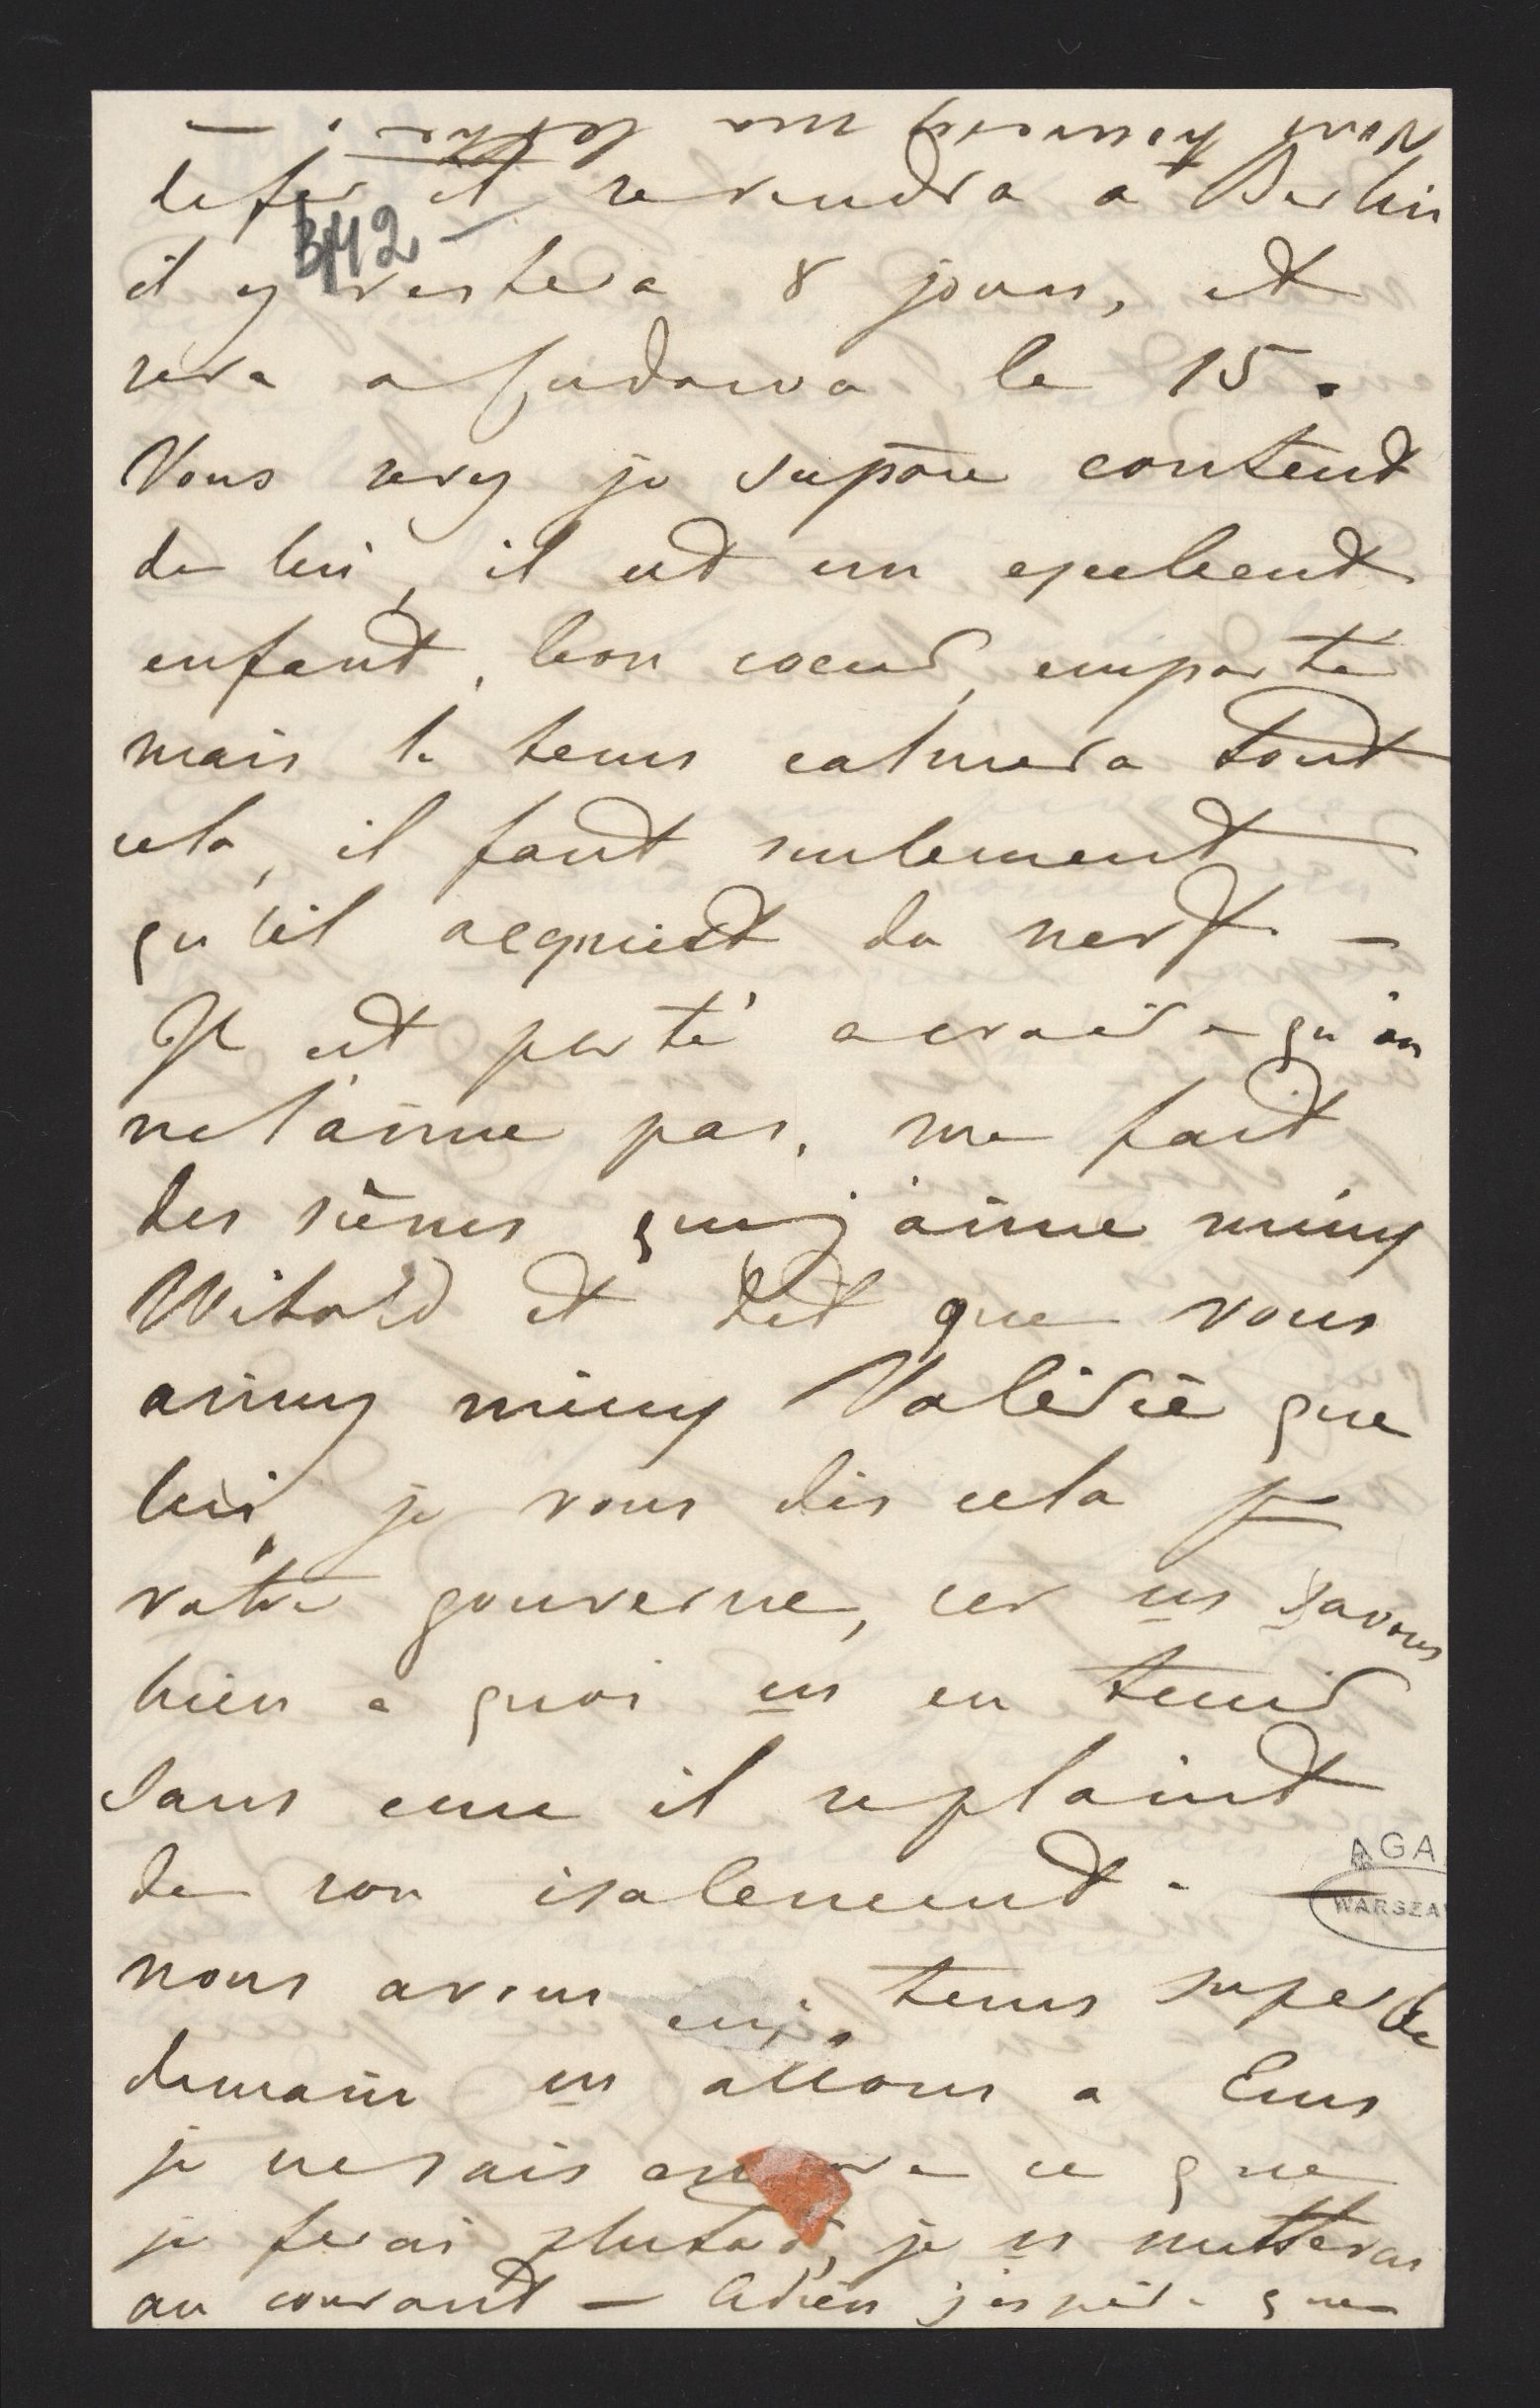 vous trouverez ma lettre. —
de fer et reviendra a Berlin
B/42 —
il y restera 8 jours, et
sera a Sudawa le 15.
Vous serez je supose contend
de lui, il est un exelent
enfant, bon coeur, emporte
mais le tems calmera tout
cela, il faut seulement
qu'il acquiert du nerf —
Il est porté a croire qu'on
ne l'aime pas, me fait
des sènes que j'aime mieux
Witold et dit que vous
aimez mieux Valérie que
lui, je vous dis cela pr
votre gouverne, car ns savons
bien a quoi ns en tenir
sans cesse il se plaint
de son isolement. —
AGA
WARSZA
nous avons un tems superbe
demain ns allons a Ems
je ne sais encore ce que
je ferai plutard, je vs metterai
au courant — Adieu j'espère que